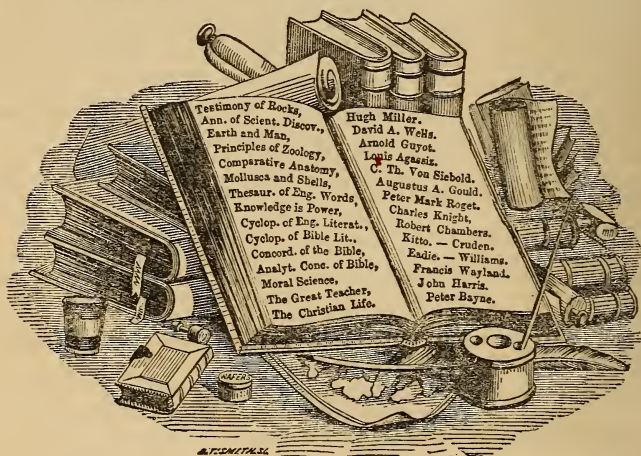 Testimony of Rocks,
Ann. of Scient. Discov.,
Earth and Man,
Principles of Zoology,
Comparative Anatomy,
Mollusca and Shells,
Thesaur. of Eng. Words,
Knowledge is Power,
Cyclop. of Eng. Literat.,
Cyclop. of Bible Lit.,
Concord. of the Bible,
Analyt. Conc. of Bible,
Moral Science,
The Great Teacher,
The Christian Life.
Hugh Miller.
David A. Wells.
Arnold Guyot.
Louis Agassiz.
C. Th. Von Siebold.
Augustus A. Gould.
Peter Mark Roget.
Charles Knight,
Robert Chambers.
Kitto. — Cruden.
Eadie. — Williams.
Francis Wayland.
John Harris.
Peter Bayne.
WAFERS
B.T. SMITH. SC.